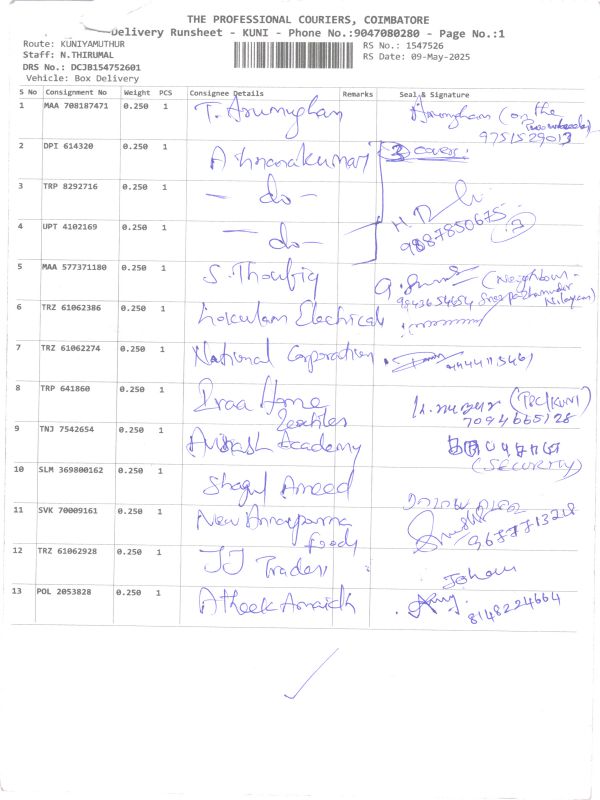 THE PROFESSIONAL COURIERS, COIMBATORE
Delivery Runsheet - KUNI - Phone No.:9047080280 - Page No.:1
Route: KUNIYAMUTHUR RS No.: 1547526
Staff: N.THIRUMAL RS Date: 09-May-2025
DRS No.: DCJB154752601
Vehicle: Box Delivery
S No Consignment No Weight PCS Consignee Details Remarks Seal & Signature
1 MAA 708187471 0.250 1 T. Arumugham Arumugham (on the
9751529013
2 DPI 614320 0.250 1 3 covers.
3 TRP 8292716 0.250 1 — do —
4 UPT 4102169 0.250 1 — do — 9887850675
5 MAA 577371180 0.250 1 S. Thoufiq (Neighbour -
9843654654
6 TRZ 61062386 0.250 1 Gokulam Electrical
7 TRZ 61062274 0.250 1 National Corporation 9444113461
8 TRP 641860 0.250 1 Home (TPC/KUNI)
Textiles 7094665128
9 TNJ 7542654 0.250 1 Academy
(SECURITY)
10 SLM 369800162 0.250 1 Shagul Ameed
11 SVK 70009161 0.250 1 New Annapurna
foods 9677713218
12 TRZ 61062928 0.250 1 JJ Traders
13 POL 2053828 0.250 1 Atheek 8148224664